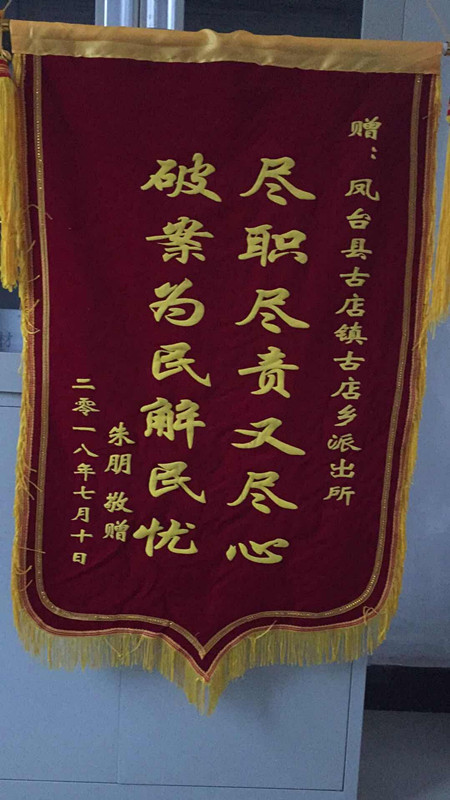 赠：凤台县古店镇古店乡派出所
尽职尽责又尽心
破案为民解民忧
朱朋 敬赠
二零一八年七月十日